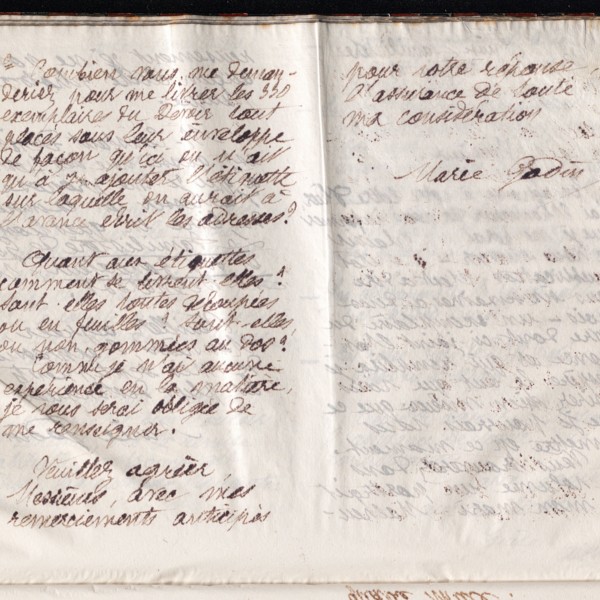 Combien vous me deman-
deriez pour me livrer les 350
exemplaires du Devoir tout
placés sous leur enveloppe
de façon qu'ici on n'ait
qu'à y ajouter l'étiquette
sur laquelle on aurait à
l'avance écrit les adresses?
Quant aux étiquettes
comment se livrent-elles?
Sont-elles toutes découpées
ou en feuilles? Sont-elles,
ou non, gommées au dos?
Comme je n'ai aucune
expérience en la matière,
je vous serai obligée de
me renseigner.
Veuillez agréer,
Messieurs, avec mes
remerciements anticipés
pour votre réponse,
l'assurance de toute
ma considération
Marie Godin